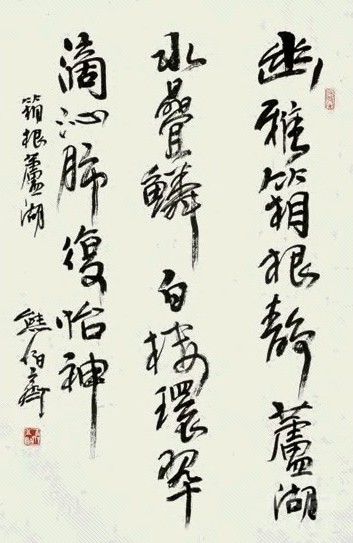 幽雅箱根静蘆湖
水疊鱗白楼環翠
滴沁肺復怡神
箱根蘆湖
熊伯齋